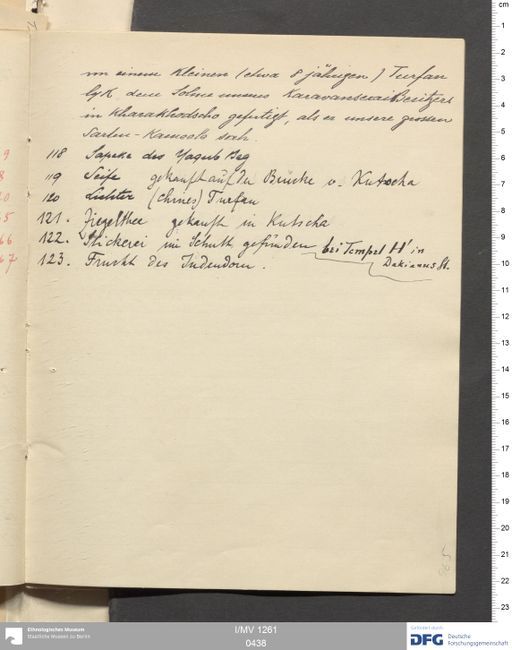 von einem kleinen (etwa 8 jährigen) Turfan
lyk dem Sohne unseres Karavanserai Besitzers
in Kharakhodscho gefertigt, als er unsere grossen
Sarten-Kameele sah.
118 Sapeke des Yaqub Beg
119 Seife gekauft auf der Brücke v. Kutscha
120 Lichter (Chines) Turfan
121. Ziegelthee gekauft in Kutscha
122. Stickerei im Schutt gefunden bei Tempel H' in
Dakianus St.
123. Frucht des Judendorn.
I/MV 1261
0438
Ethnologisches Museum
Staatliche Museen zu Berlin
Gefördert durch
DFG Deutsche
Forschungsgemeinschaft
cm
1
2
3
4
5
6
7
8
9
10
11
12
13
14
15
16
17
18
19
20
21
22
23